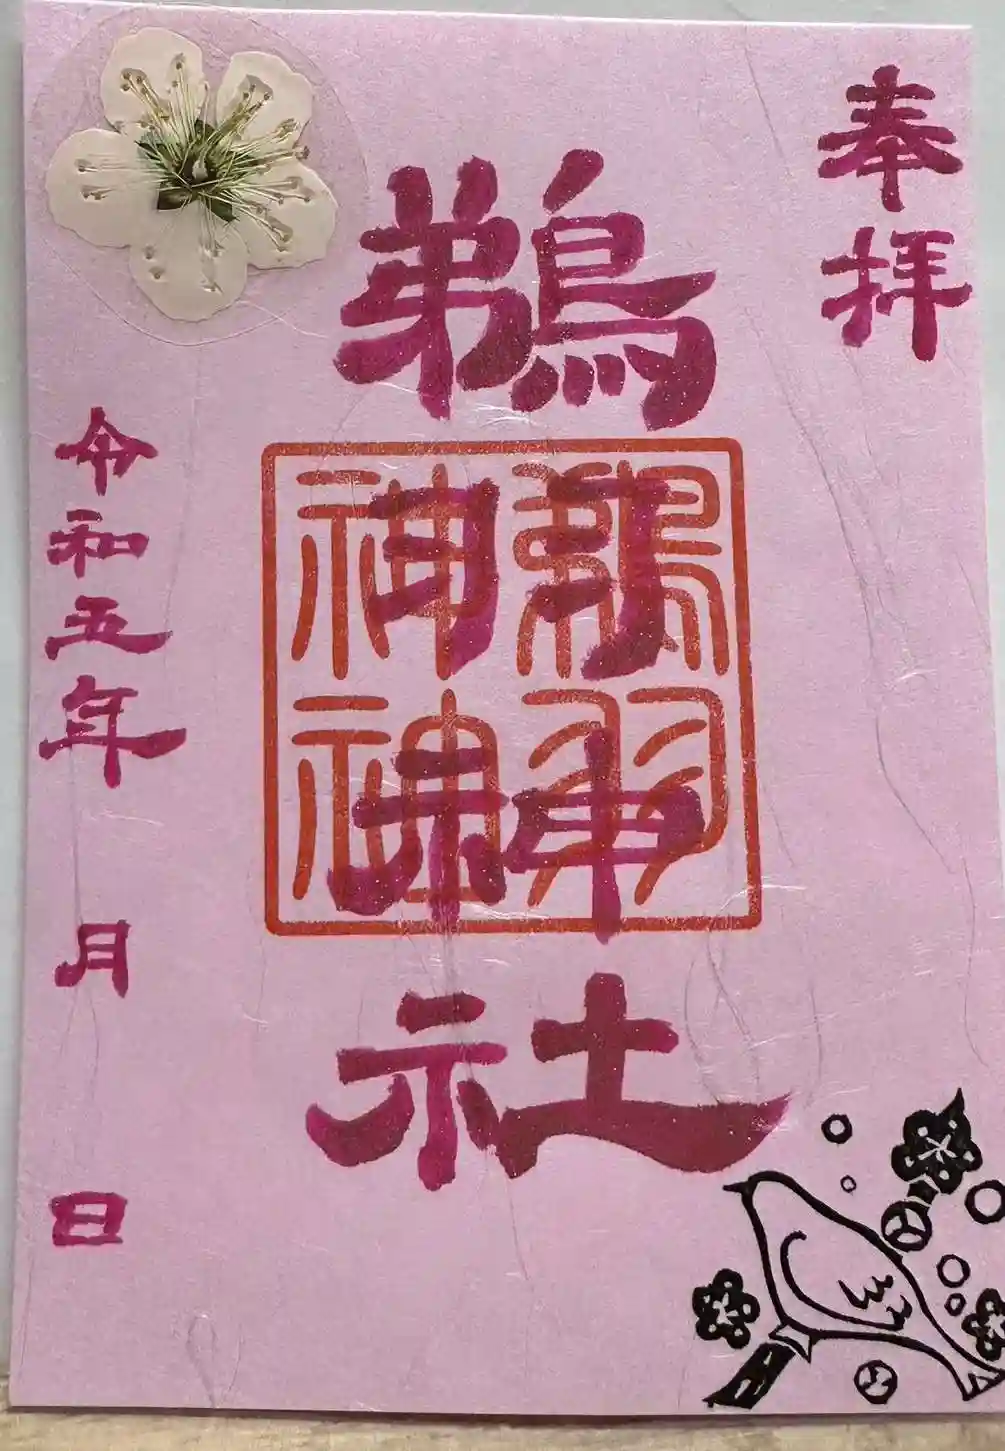 奉拝
鵜羽神社
鵜羽
神
令和五年 月 日